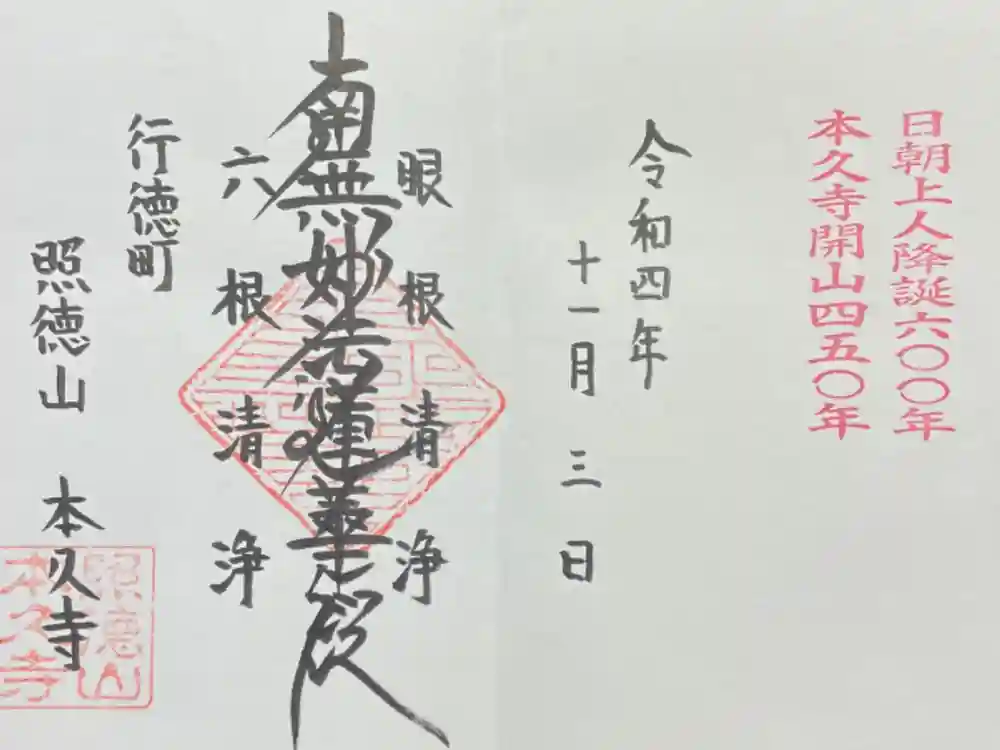 日朝上人降誕六〇〇年
本久寺開山四五〇年
令和四年
十一月 三 日
眼根清浄
南無妙法蓮華経
六根清浄
行徳町
照徳山 本久寺
照徳山
本久寺